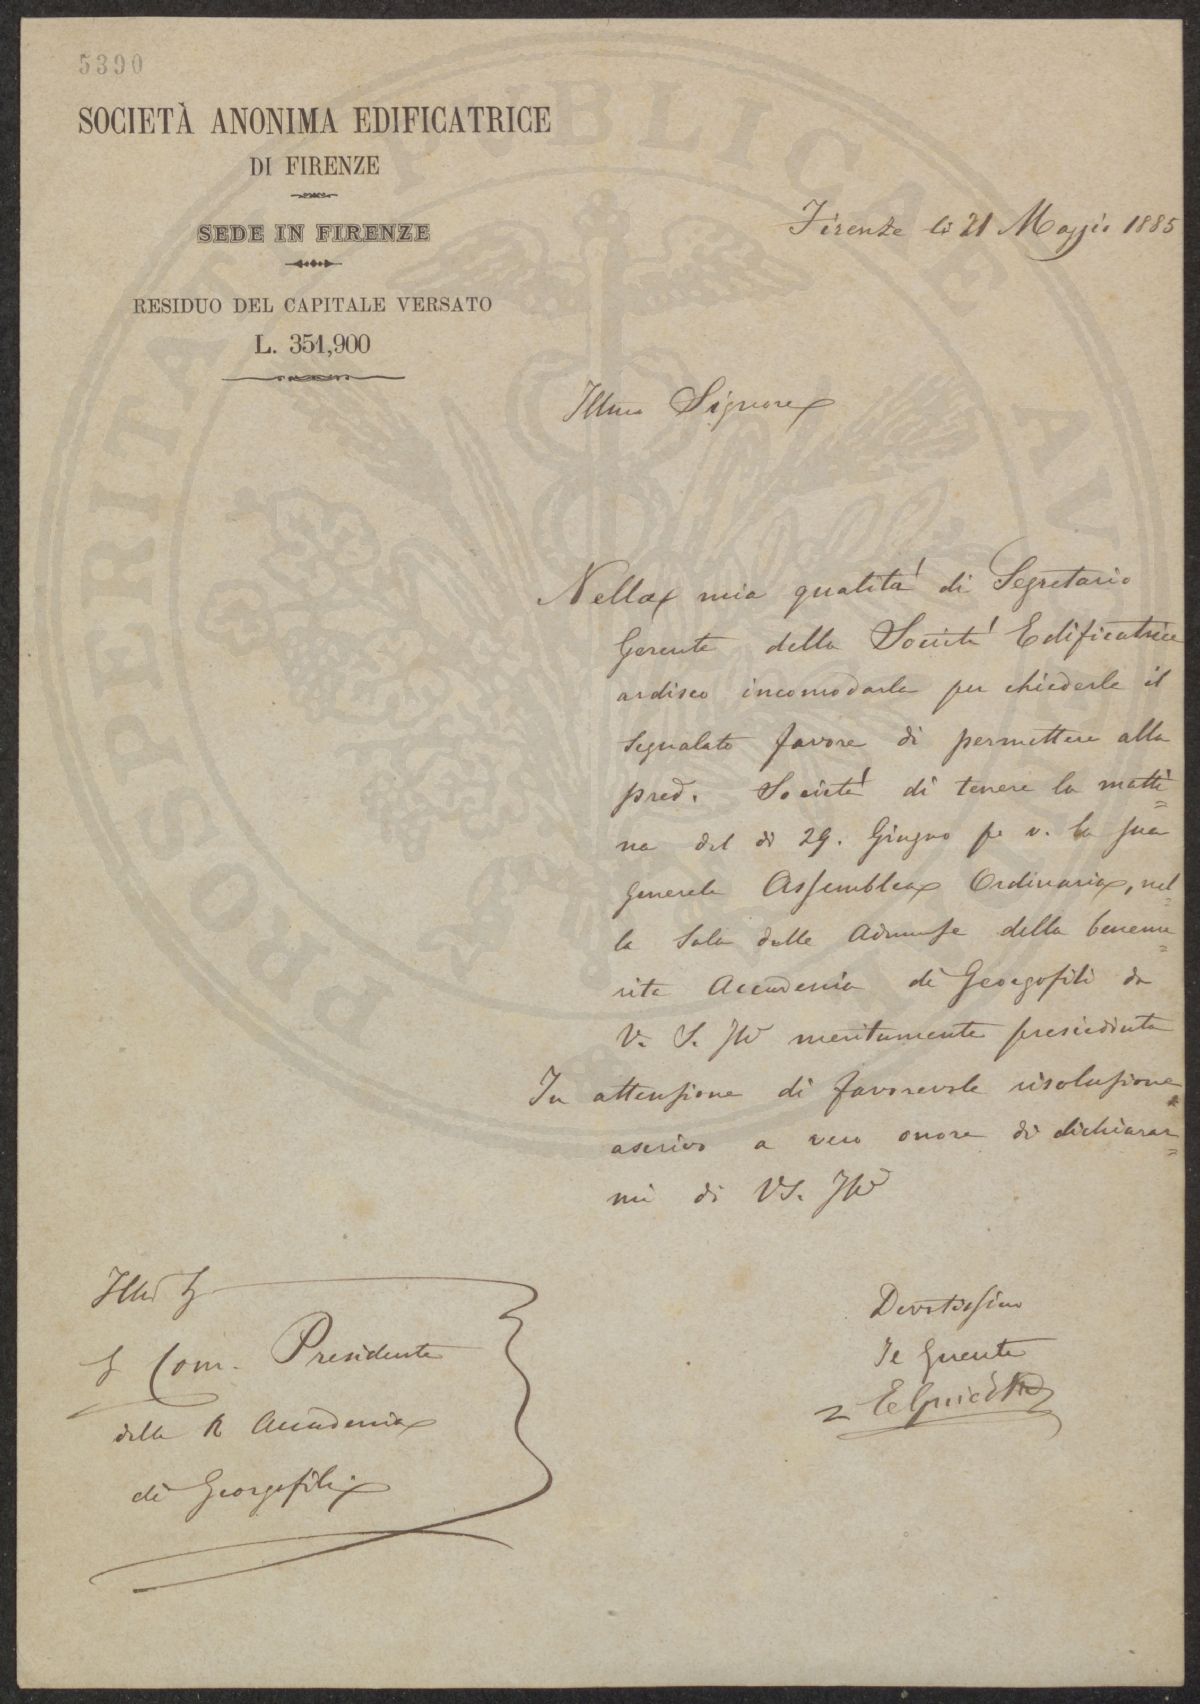 5390
SOCIETÀ ANONIMA EDIFICATRICE
DI FIRENZE
SEDE IN FIRENZE
RESIDUO DEL CAPITALE VERSATO
L. 351,900
Firenze li 21 Maggio 1885
Illmo Signore
Nella mia qualità di Segretario
Gerente della Società Edificatrice
ardisco incomodarla per chiederle il
segnalato favore di permettere alla
pred. Società di tenere la matti=
na del di 29. Giugno p v. la sua
generale Assemblea Ordinaria, nel=
la Sala delle Adunanze della beneme=
rita Accademia di Georgofili da
V. S. Illma meritamente presieduta
In attenzione di favorevole risoluzione
ascrivo a vero onore di dichiarar=
mi di VS. Illma
Devotissimo
Il Gerente
Illmo Sig
Com. Presidente
della R Accademia
di Georgofili
PROSPERITATI PUBLICAE AUGENDAE